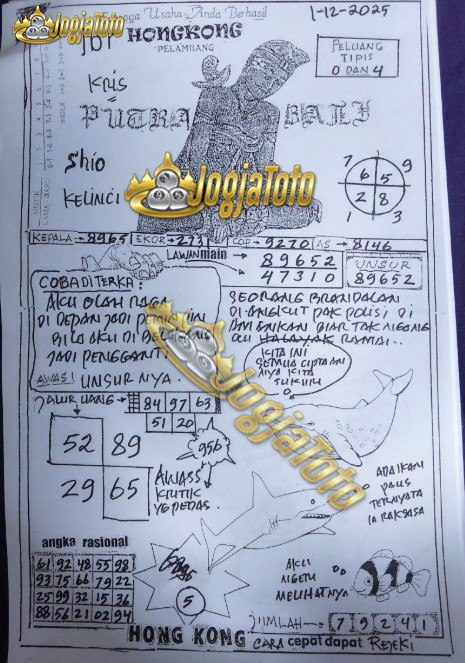 Semoga Usaha Anda Berhasil
1-12-2025
JogjaToto
HONGKONG
PELAMBANG
PELUANG
TIPIS
0 DAN 4
KRIS
=
PUTRA BALI
Shio
=
KELINCI
JogjaToto
7 9
6 5
2 8
1 3
KEPALA → 8965 EKOR → 2731 COP → 9270 AS → 8146
LAWAN main → 89652
→ 47310
UNSUR
89652
COBA DITERKA:
AKU OLAH RAGA
DI DEPAN JADI
BILA AKU DI
JADI PENGGANTI
AWAS! UNSUR NYA.
SEORANG BRANDALAN
DI ANGKUT PAK POLISI DI
AMANKAN BIAR TAK
RAMAI..
KITA INI
SEMUA CIPTAAN
KITA
JogjaToto
JALUR UANG →
84 97 63
51 20
956
52 89
29 65
AWASS
KRITIK
YG PEDAS.
ADA IKAN
PAUS
TERNYATA
IA RAKSASA
angka rasional
61 92 48 55 98
93 75 66 79 22
25 99 32 15 36
88 56 21 02 94
5
AKU
NGERI
MELIHATNYA
JIIMLAH → 7 9 2 4 1
HONG KONG CARA cepat dapat REJEKI